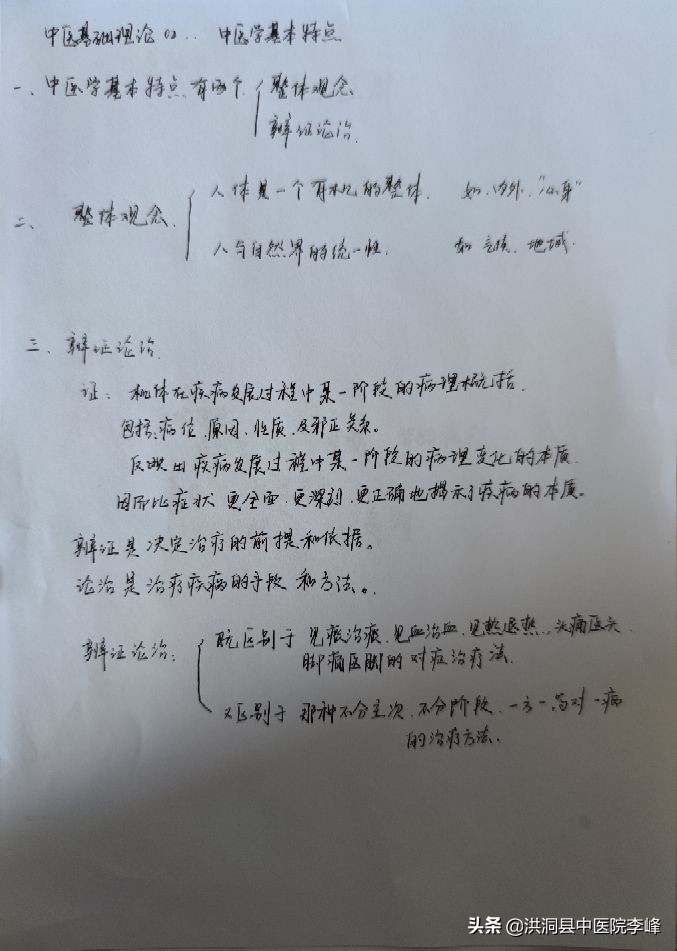 中医基础理论02.. 中医学基本特点
一、中医学基本特点有两个 整体观念
辨证论治
二、整体观念 人体是一个有机的整体. 如.内外."心身"
人与自然界的统一性. 如 气候、地域.
三、辨证论治.
证: 机体在疾病发展过程中某一阶段的病理概括.
包括病位.原因.性质.及邪正关系。
反映出疾病发展过程中某一阶段的病理变化的本质.
因而比症状 更全面.更深刻.更正确地揭示了疾病的本质。
辨证是决定治疗的前提和依据。
论治是治疗疾病的手段和方法。
辨证论治: 既区别于 见痰治痰.见血治血.见热退热.头痛医头.
脚痛医脚的对症治疗法.
又区别于 那种不分主次.不分阶段.一方一药对一病
的治疗方法.
头条 @洪洞县中医院李峰